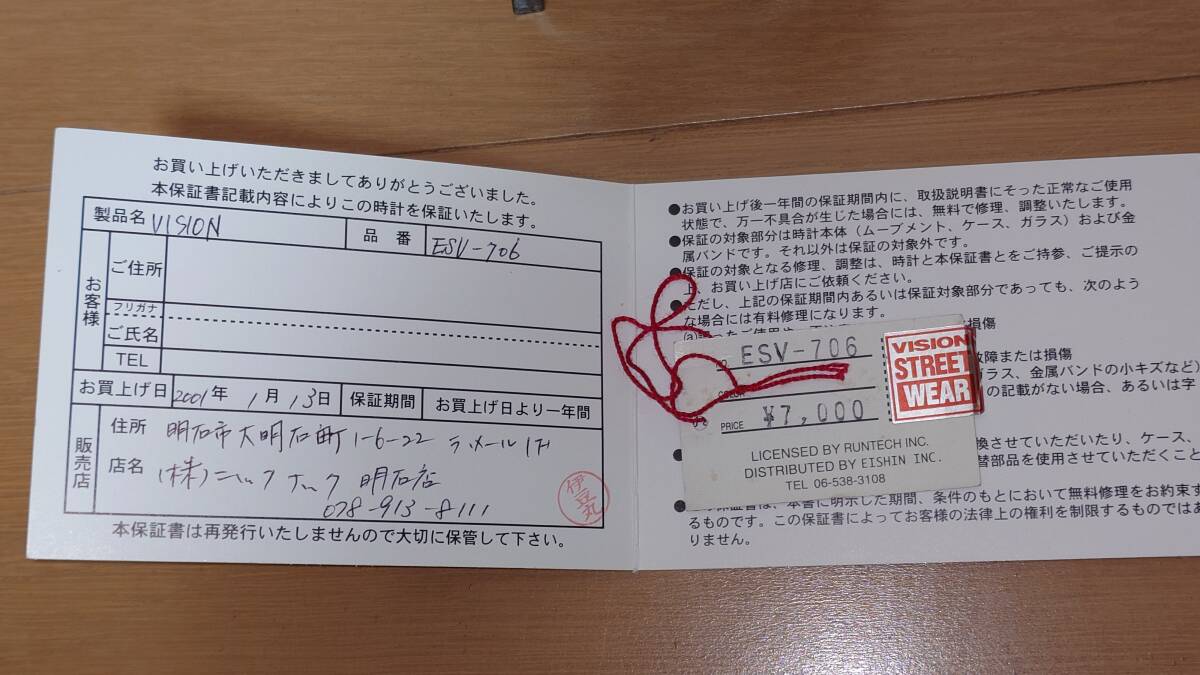 お買い上げいただきましてありがとうございました。
本保証書記載内容によりこの時計を保証いたします。
製品名 VISION 品番 ESV-706
お客様
ご住所
フリガナ
ご氏名
TEL
お買上げ日 2001年 1月 13日 保証期間 お買上げ日より一年間
販売店
住所 明石市大明石町1-6-22 ラメール1F
店名 (株)ニック ナック 明石店
078-913-8111
伊豆丸
本保証書は再発行いたしませんので大切に保管して下さい。
●お買い上げ後一年間の保証期間内に、取扱説明書にそった正常なご使用
状態で、万一不具合が生じた場合には、無料で修理、調整いたします。
●保証の対象部分は時計本体（ムーブメント、ケース、ガラス）および金
属バンドです。それ以外は保証の対象外です。
●保証の対象となる修理、調整は、時計と本保証書とをご持参、ご提示の
上、お買い上げ店にご依頼ください。
●ただし、上記の保証期間内あるいは保証対象部分であっても、次のよう
な場合には有料修理になります。
損傷
故障または損傷
ガラス、金属バンドの小キズなど）
の記載がない場合、あるいは字
換させていただいたり、ケース、
替部品を使用させていただくこと
保証書は、本書に明示した期間、条件のもとにおいて無料修理をお約束す
るものです。この保証書によってお客様の法律上の権利を制限するものではあ
りません。
ESV-706
COLOR
PRICE ¥7,000
VISION
STREET
WEAR
LICENSED BY RUNTECH INC.
DISTRIBUTED BY EISHIN INC.
TEL 06-538-3108